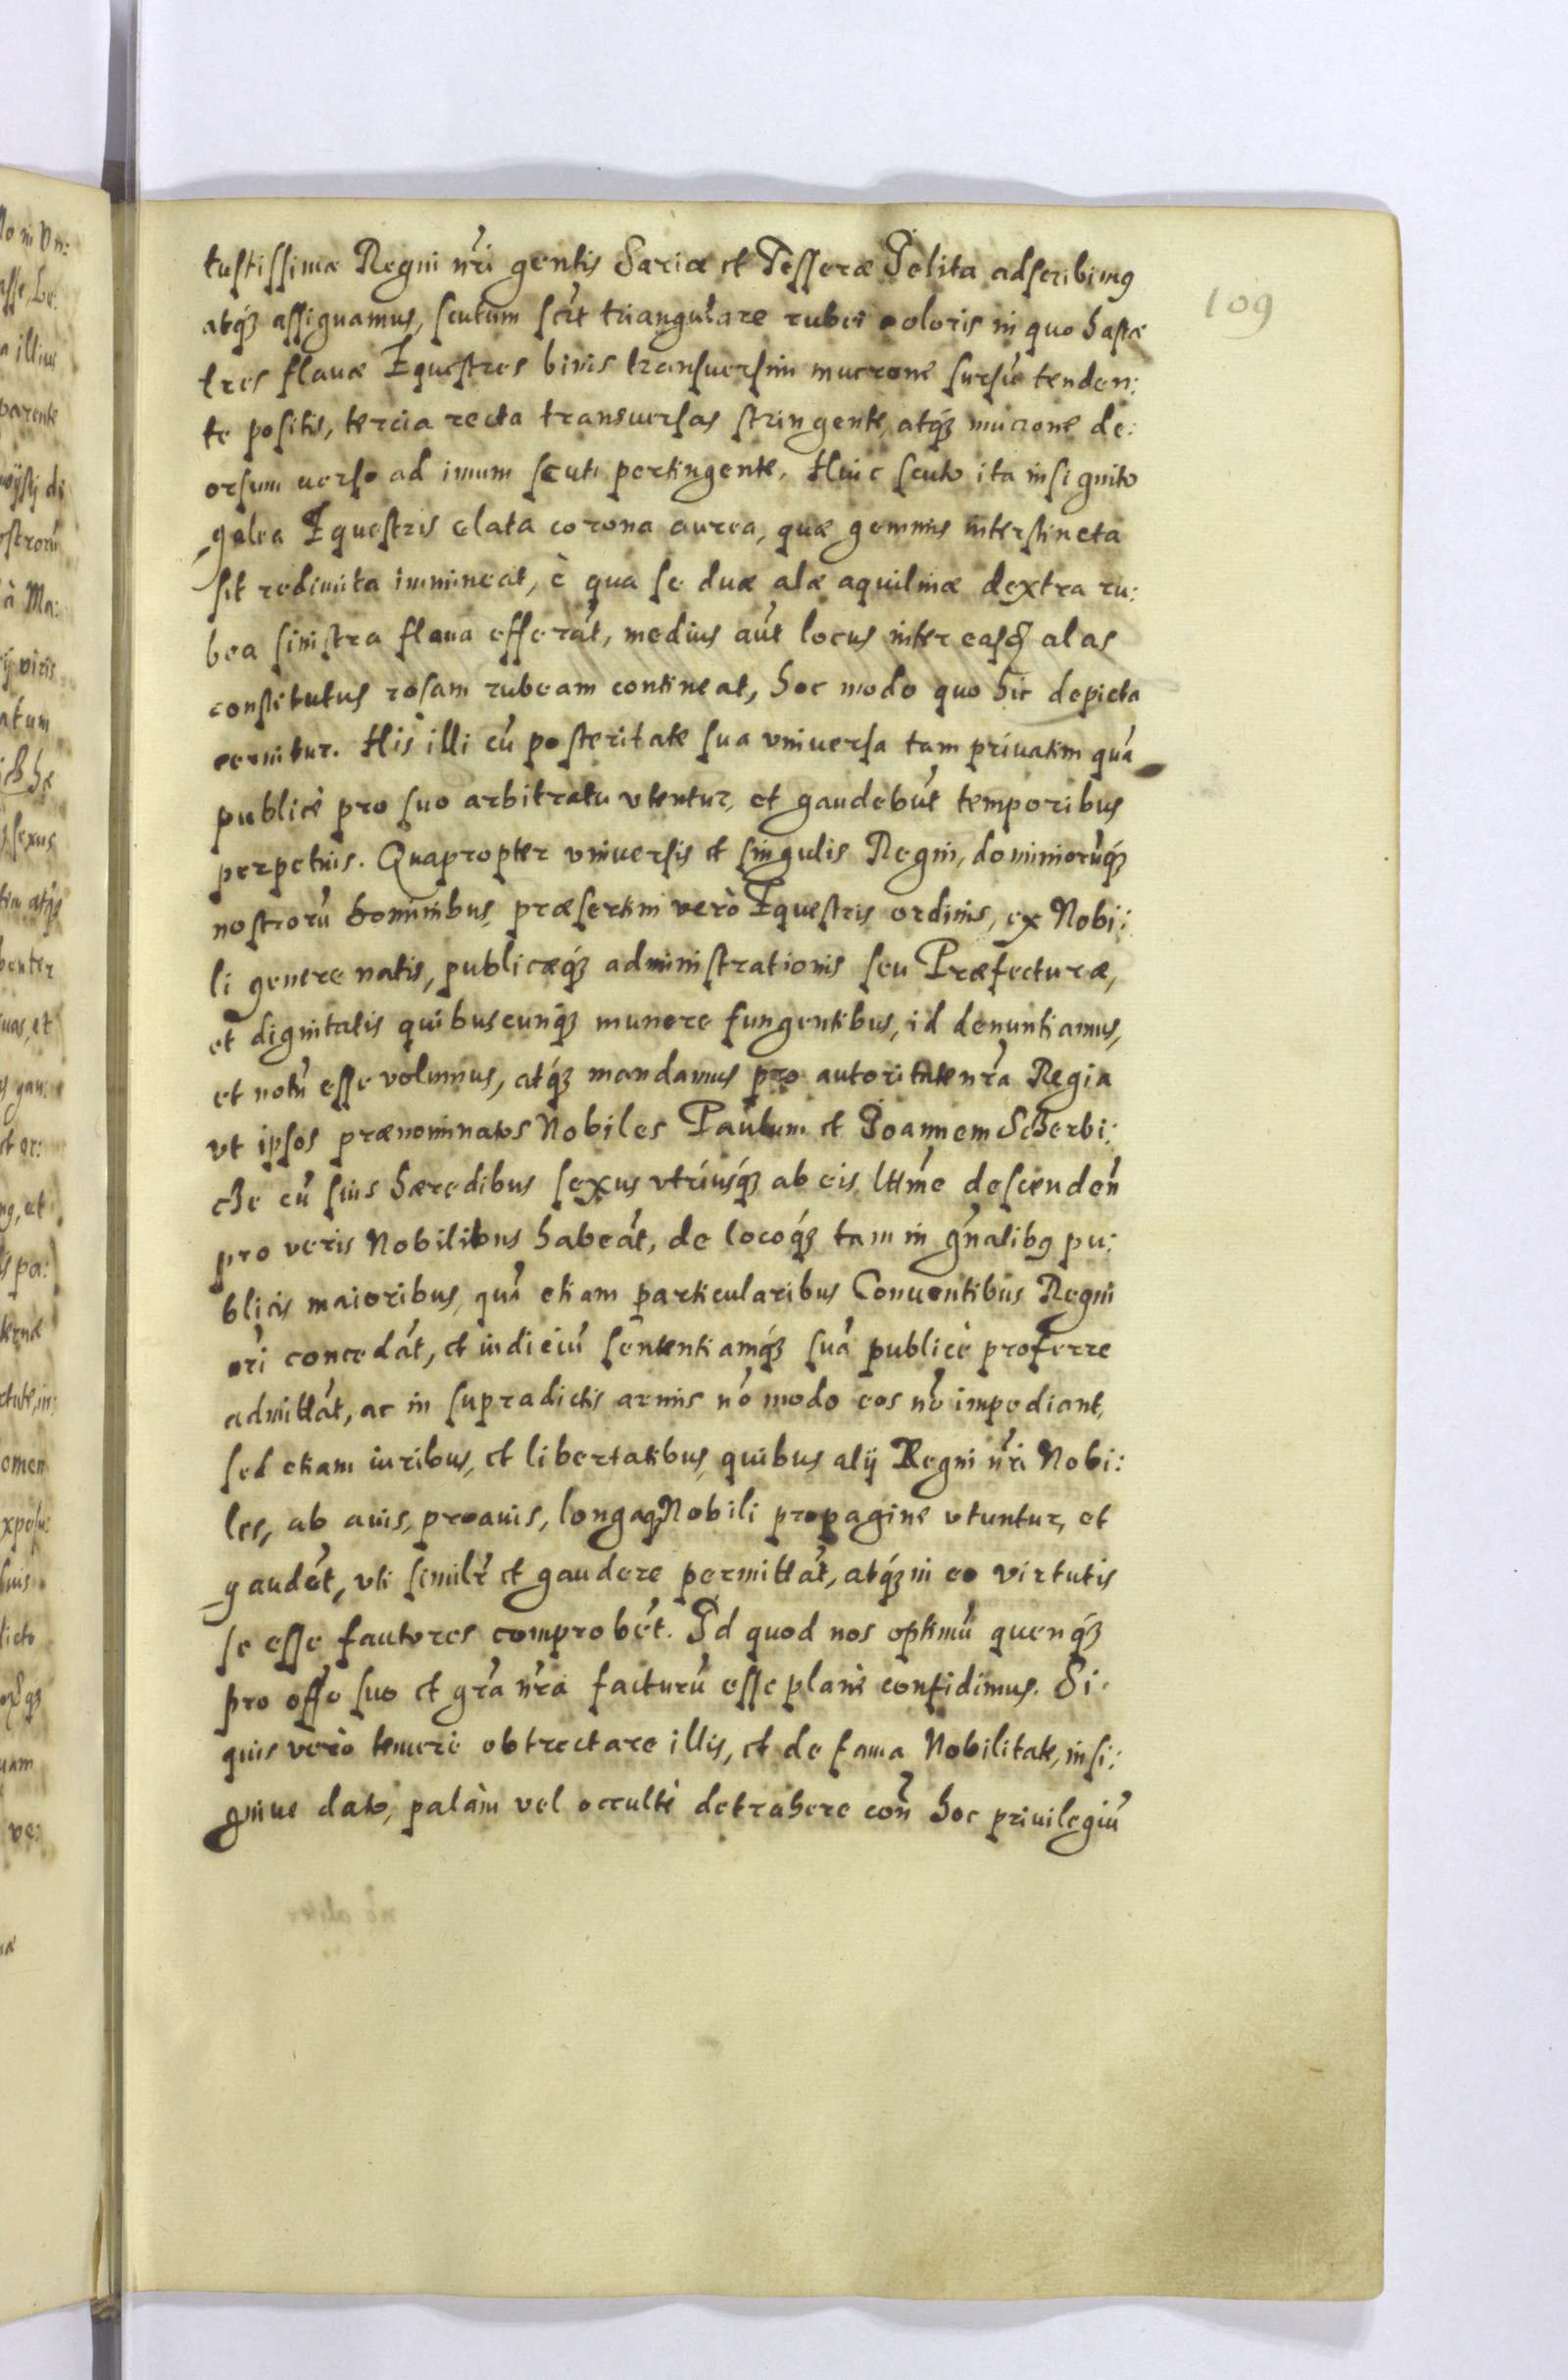 109
tustissimæ Regni nri gentis Sariæ et Tesseræ Jelita adscribimus
atq; assignamus, scutum sclt triangulare rubei coloris in quo hastæ
tres flauæ Equestres binis transuersim mucrone sursũ tenden:
te positis, tercia recta transuersas stringente, atq; mucrone de:
orsum uerso ad imum scuti pertingente. Huic scuto ita insignito
galea Equestris elata corona aurea, quæ gemmis interstincta
sit redimita immineat, è qua se duæ alæ aquilinæ dextra ru:
bea sinistra flaua efferãt, medius aũt locus inter easdẽ alas
constitutus rosam rubeam contineat, hoc modo quo hic depicta
cernitur. His illi cũ posteritate sua vniuersa tam priuatim quã
publicè pro suo arbitratu vtentur, et gaudebũt temporibus
perpetuis. Quapropter vniuersis et singulis Regni, dominiorũq;
nostrorũ hominibus, præsertim verò Equestris ordinis, ex Nobi:
li genere natis, publicæq; administrationis seu Præfecturæ,
et dignitatis quibuscunq; munere fungentibus, id denuntiamus,
et notũ esse volumus, atq; mandamus pro autoritate nrã Regia
vt ipsos prænominatos Nobiles Paulum et Joannem Scherbi:
che cũ suis hæredibus sexus vtriusq; ab eis lttme descendeñ
pro veris Nobilibus habeãt, de locoq; tam in gñalibus pu:
blicis maioribus, quã etiam particularibus Conuentibus Regni
nri concedãt, et iudiciũ sententiamq; suã publicè proferre
admittãt, ac in supradictis armis nõ modo eos nõ impediant,
sed etiam iuribus, et libertatibus, quibus alij Regni nri Nobi:
les, ab auis, proauis, longaq; Nobili propagine vtuntur, et
gaudẽt, vti similr et gaudere permittãt, atq; in eo virtutis
se esse fautores comprobẽt. Id quod nos optimũ quenq;
pro offo suo et grã nrã facturũ esse planè confidimus. Si
quis verò temerè obtrectare illis, et de fama Nobilitate, insi:
gniue dato, palàm vel occultè detrahere coñ hoc priuilegiũ